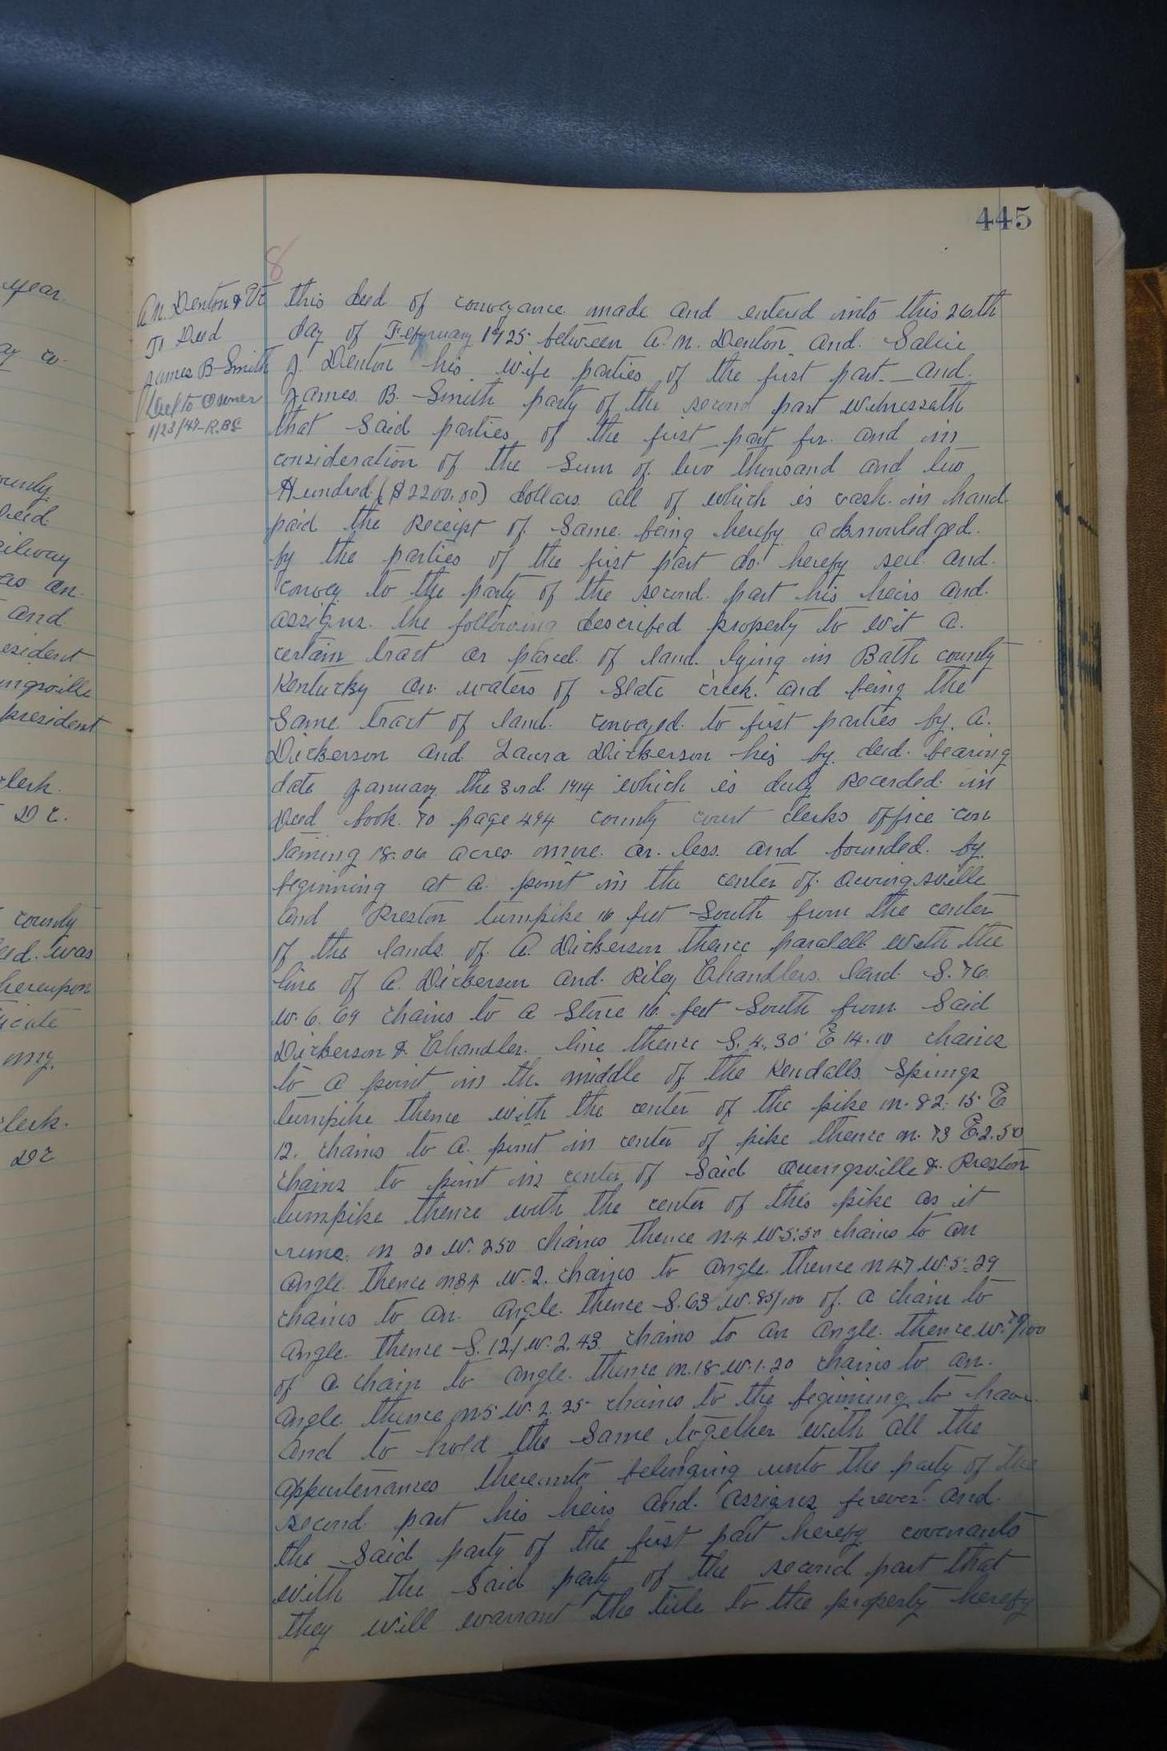 445
8
A.M. Denton & Wf
To Deed
James B. Smith
Del to Owner
1/23/47-R.B.S.
this deed of conveyance made and entered into this 26th
day of February 1925 between A. M. Denton and Salie
J. Denton his wife parties of the first part and
James B. Smith party of the second part witnesseth
that Said parties of the first part for and in
consideration of the Sum of two thousand and two
Hundred ($2200.00) dollars all of which is cash in hand
paid the Receipt of Same being hereby acknowledged
by the parties of the first part do hereby sell and
convey to the party of the second part his heirs and
assigns the following described property to wit a
certain tract or parcel of land lying in Bath county
Kentucky on waters of Slate creek and being the
Same tract of land conveyed to first parties by A.
Dickerson and Laura Dickerson his by deed bearing
date January the 3rd 1914 which is duly Recorded in
Deed book 70 page 494 county court clerks office con
taining 18.06 acres more or less and bounded by
beginning at a point in the center of Owingsville
and Preston turnpike 16 feet South from the center
of the lands of A. Dickerson thence paralell with the
line of A. Dickerson and Riley Chandlers land S. 76
W. 6.69 chains to a Stone 16 feet South from Said
Dickerson & Chandler line thence S. 4.30 E 14.10 chains
to a point in the middle of the Kendalls Springs
turnpike thence with the center of the pike N. 82.15 E
12. chains to a point in center of pike thence N. 73 E 2.50
chains to point in center of Said Owingsville & Preston
turnpike thence with the center of this pike as it
runs N 20 W. 250 chains thence N 4 W 5.50 chains to an
angle thence N 84 W. 2. chains to angle thence N 47 W. 5.29
chains to an angle thence S. 63 W. 85/100 of a chain to
angle thence S. 12 W. 2.43 chains to an angle thence W.
of a chain to angle thence N. 18 W. 1.20 chains to an
angle thence N 5 W. 2.25 chains to the beginning to have
and to hold the Same together with all the
appurtenances thereunto belonging unto the party of the
second part his heirs and assigns forever and
the Said party of the first part hereby covenants
with the Said party of the second part that
they will warrant the title to the property hereby